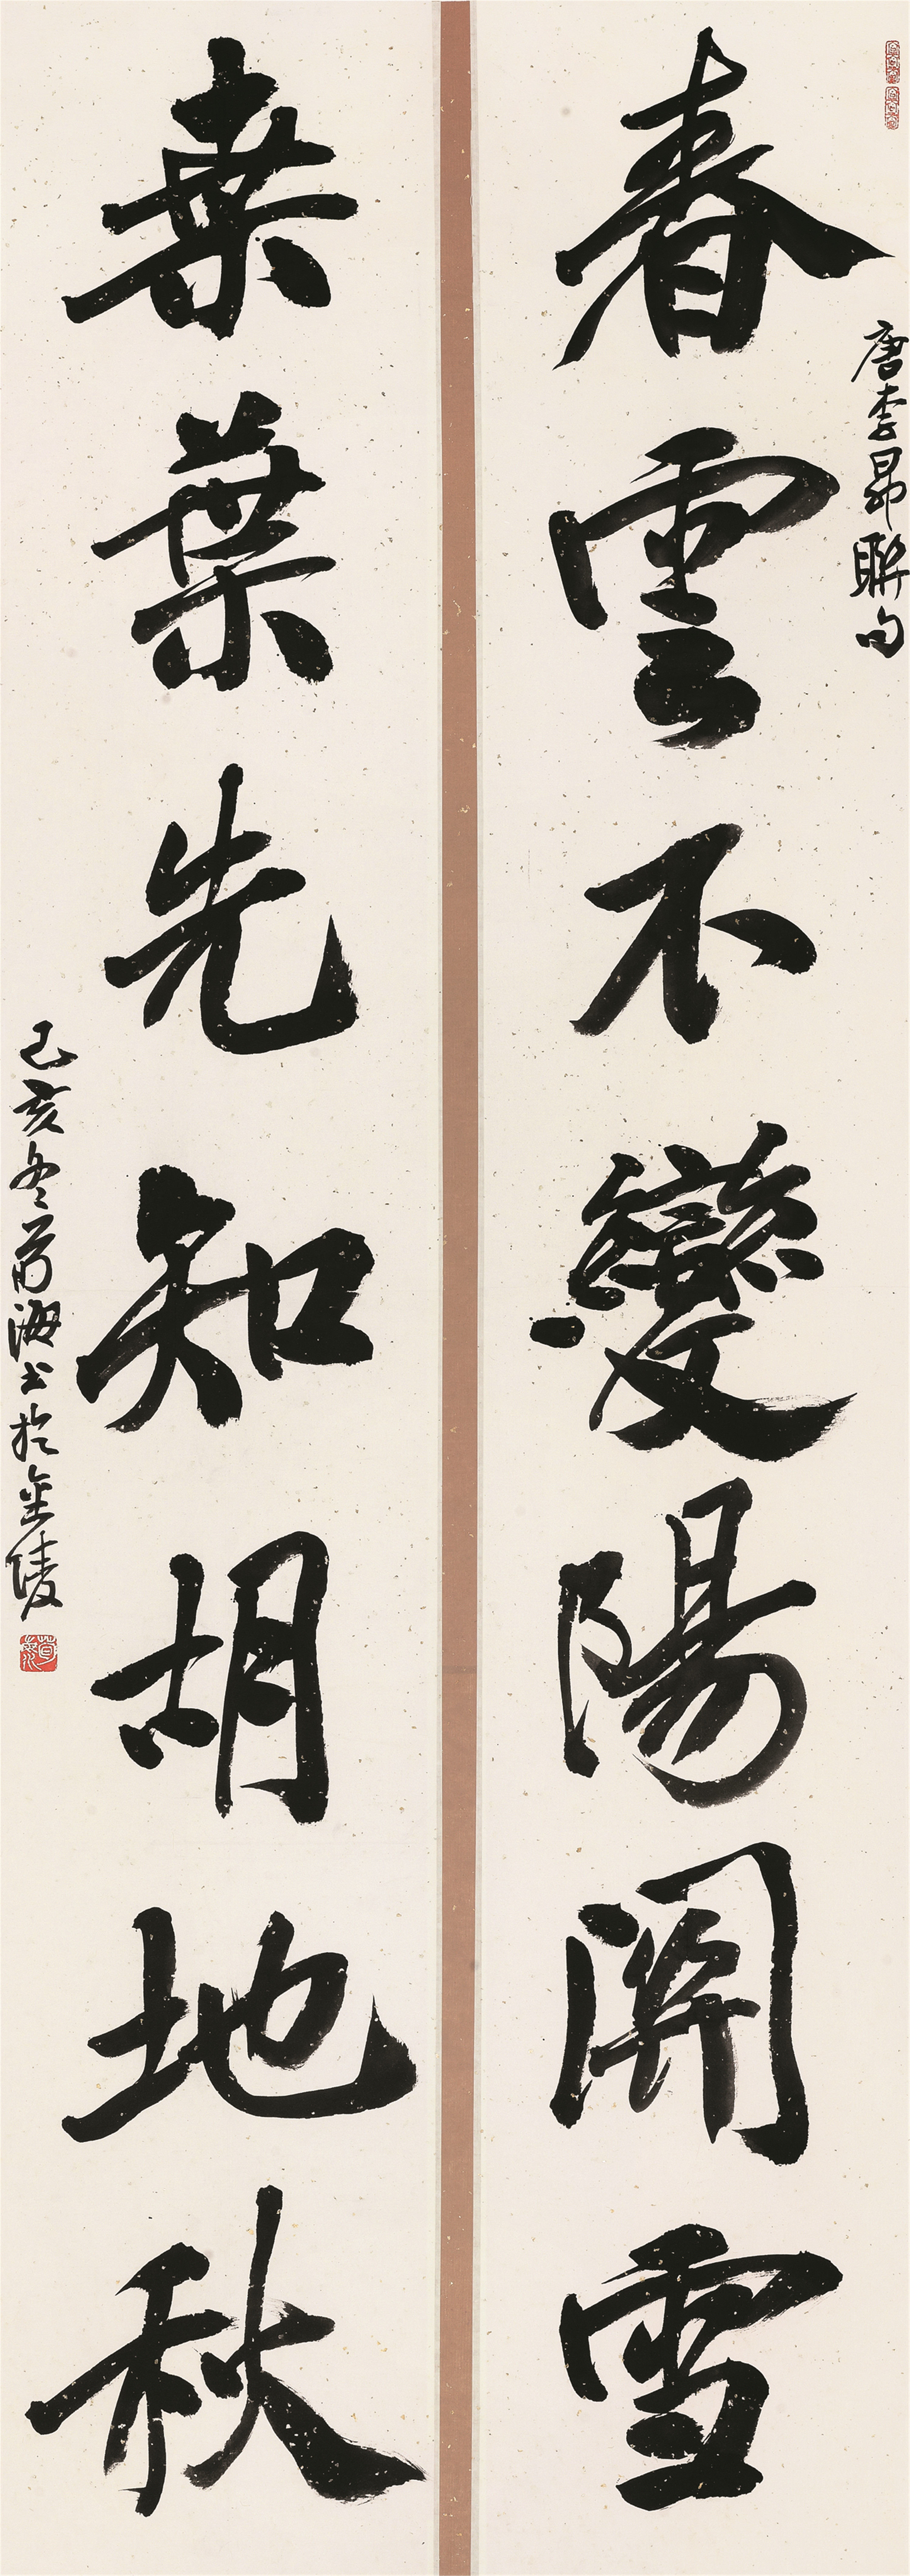 春雲不變陽關雪
桒葉先知胡地秋
唐李昂聯句
己亥冬荀海書於金陵